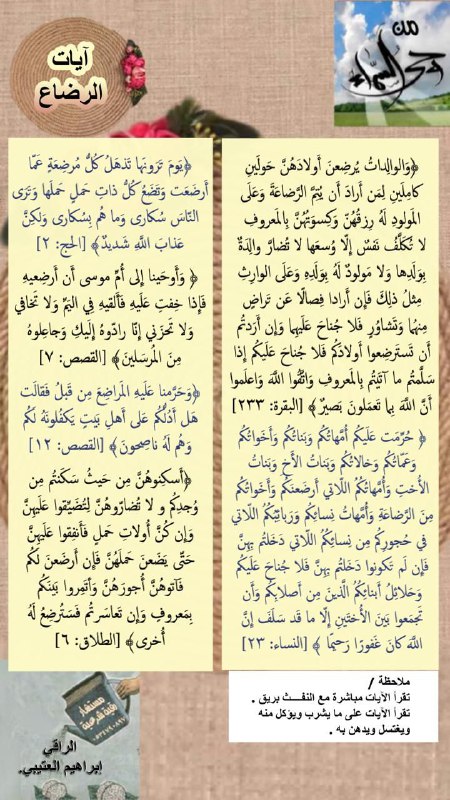 آيات
الرضاع
من
﴿وَالوالِداتُ يُرضِعنَ أَولادَهُنَّ حَولَينِ
كامِلَينِ لِمَن أَرادَ أَن يُتِمَّ الرَّضاعَةَ وَعَلَى
المَولودِ لَهُ رِزقُهُنَّ وَكِسوَتُهُنَّ بِالمَعروفِ
لا تُكَلَّفُ نَفسٌ إِلّا وُسعَها لا تُضارَّ والِدَةٌ
بِوَلَدِها وَلا مَولودٌ لَهُ بِوَلَدِهِ وَعَلَى الوارِثِ
مِثلُ ذلِكَ فَإِن أَرادا فِصالًا عَن تَراضٍ
مِنهُما وَتَشاوُرٍ فَلا جُناحَ عَلَيهِما وَإِن أَرَدتُم
أَن تَستَرضِعوا أَولادَكُم فَلا جُناحَ عَلَيكُم إِذا
سَلَّمتُم ما آتَيتُم بِالمَعروفِ وَاتَّقُوا اللَّهَ وَاعلَموا
أَنَّ اللَّهَ بِما تَعمَلونَ بَصيرٌ﴾ [البقرة: ٢٣٣]
﴿ حُرِّمَت عَلَيكُم أُمَّهاتُكُم وَبَناتُكُم وَأَخَواتُكُم
وَعَمّاتُكُم وَخالاتُكُم وَبَناتُ الأَخِ وَبَناتُ
الأُختِ وَأُمَّهاتُكُمُ اللّاتي أَرضَعنَكُم وَأَخَواتُكُم
مِنَ الرَّضاعَةِ وَأُمَّهاتُ نِسائِكُم وَرَبائِبُكُمُ اللّاتي
في حُجورِكُم مِن نِسائِكُمُ اللّاتي دَخَلتُم بِهِنَّ
فَإِن لَم تَكونوا دَخَلتُم بِهِنَّ فَلا جُناحَ عَلَيكُم
وَحَلائِلُ أَبنائِكُمُ الَّذينَ مِن أَصلابِكُم وَأَن
تَجمَعوا بَينَ الأُختَينِ إِلّا ما قَد سَلَفَ إِنَّ
اللَّهَ كانَ غَفورًا رَحيمًا ﴾ [النساء: ٢٣]
﴿يَومَ تَرَونَها تَذهَلُ كُلُّ مُرضِعَةٍ عَمّا
أَرضَعَت وَتَضَعُ كُلُّ ذاتِ حَملٍ حَملَها وَتَرَى
النّاسَ سُكارى وَما هُم بِسُكارى وَلكِنَّ
عَذابَ اللَّهِ شَديدٌ﴾ [الحج: ٢]
﴿ وَأَوحَينا إِلى أُمِّ موسى أَن أَرضِعيهِ
فَإِذا خِفتِ عَلَيهِ فَأَلقيهِ فِي اليَمِّ وَلا تَخافي
وَلا تَحزَني إِنّا رادّوهُ إِلَيكِ وَجاعِلوهُ
مِنَ المُرسَلينَ﴾ [القصص: ٧]
﴿وَحَرَّمنا عَلَيهِ المَراضِعَ مِن قَبلُ فَقالَت
هَل أَدُلُّكُم عَلى أَهلِ بَيتٍ يَكفُلونَهُ لَكُم
وَهُم لَهُ ناصِحونَ﴾ [القصص: ١٢]
﴿أَسكِنوهُنَّ مِن حَيثُ سَكَنتُم مِن
وُجدِكُم وَلا تُضارّوهُنَّ لِتُضَيِّقوا عَلَيهِنَّ
وَإِن كُنَّ أُولاتِ حَملٍ فَأَنفِقوا عَلَيهِنَّ
حَتّى يَضَعنَ حَملَهُنَّ فَإِن أَرضَعنَ لَكُم
فَآتوهُنَّ أُجورَهُنَّ وَأتَمِروا بَينَكُم
بِمَعروفٍ وَإِن تَعاسَرتُم فَسَتُرضِعُ لَهُ
أُخرى﴾ [الطلاق: ٦]
ملاحظة /
تقرأ الآيات مباشرة مع النفـــث بريق .
تقرأ الآيات على ما يشرب ويؤكل منه
ويغتسل ويدهن به .
الراقي
إبراهيم العتيبي.